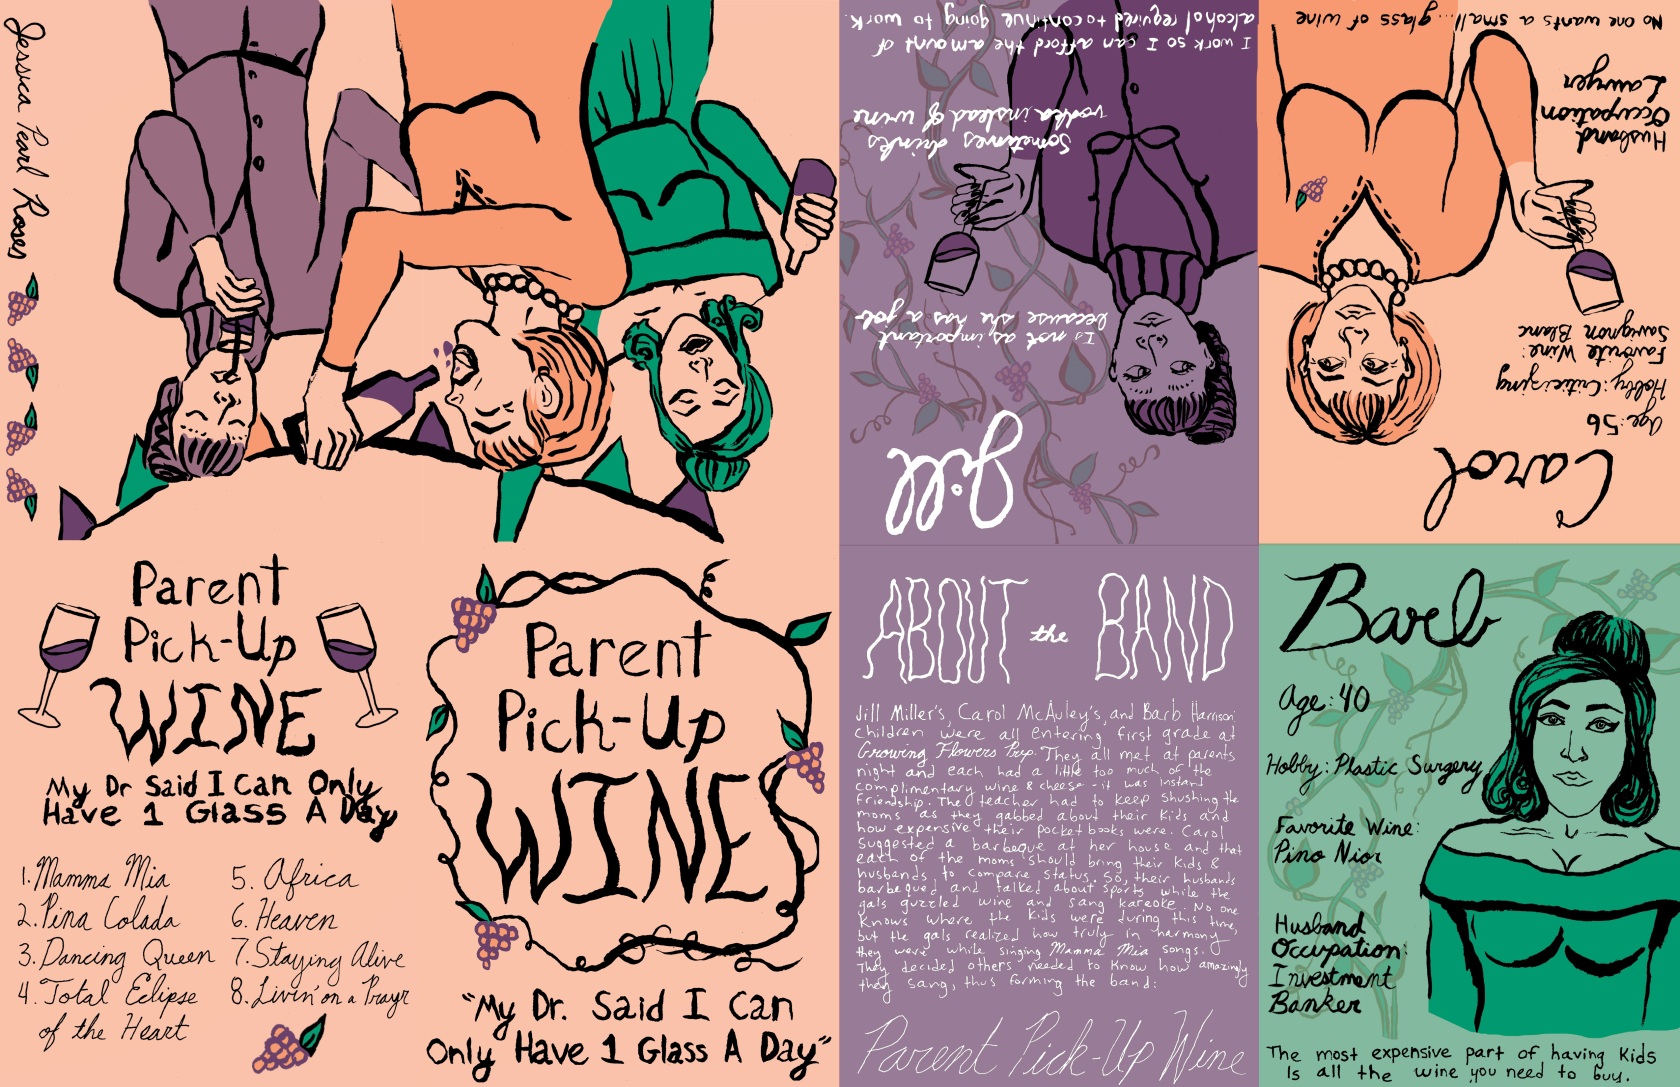 Jessica Pearl Roses
I work so I can afford the amount of
alcohol required to continue going to work.
Sometimes drinks
vodka instead of wine
Is not as important
because she has a job
Jill
No one wants a small... glass of wine
Husband
Occupation
Lawyer
Favorite Wine:
Savignon Blanc
Hobby: Criticizing
Age: 56
Carol
Parent
Pick-Up
WINE
My Dr Said I Can Only
Have 1 Glass A Day
1. Mamma Mia
2. Pina Colada
3. Dancing Queen
4. Total Eclipse
of the Heart
5. Africa
6. Heaven
7. Staying Alive
8. Livin' on a Prayr
Parent
Pick-Up
WINE
"My Dr. Said I Can
Only Have 1 Glass A Day"
ABOUT the BAND
Jill Miller's, Carol McAuley's, and Barb Harrison
children were all entering first grade at
Growing Flowers Prep. They all met at parents
night and each had a little too much of the
complimentary wine & cheese - it was instant
friendship. The teacher had to keep shushing the
moms as they gabbed about their kids and
how expensive their pocket books were. Carol
suggested a barbeque at her house and that
each of the moms should bring their kids &
husbands to compare status. So, their husbands
barbequed and talked about sports while the
gals guzzled wine and sang kareoke. No one
knows where the kids were during this time,
but the gals realized how truly in harmony
they were while singing Mamma Mia songs.
They decided others needed to know how amazingly
they sang, thus forming the band:
Parent Pick-Up Wine
Barb
Age: 40
Hobby: Plastic Surgery
Favorite Wine:
Pino Nior
Husband
Occupation:
Investment
Banker
The most expensive part of having kids
Is all the wine you need to buy.